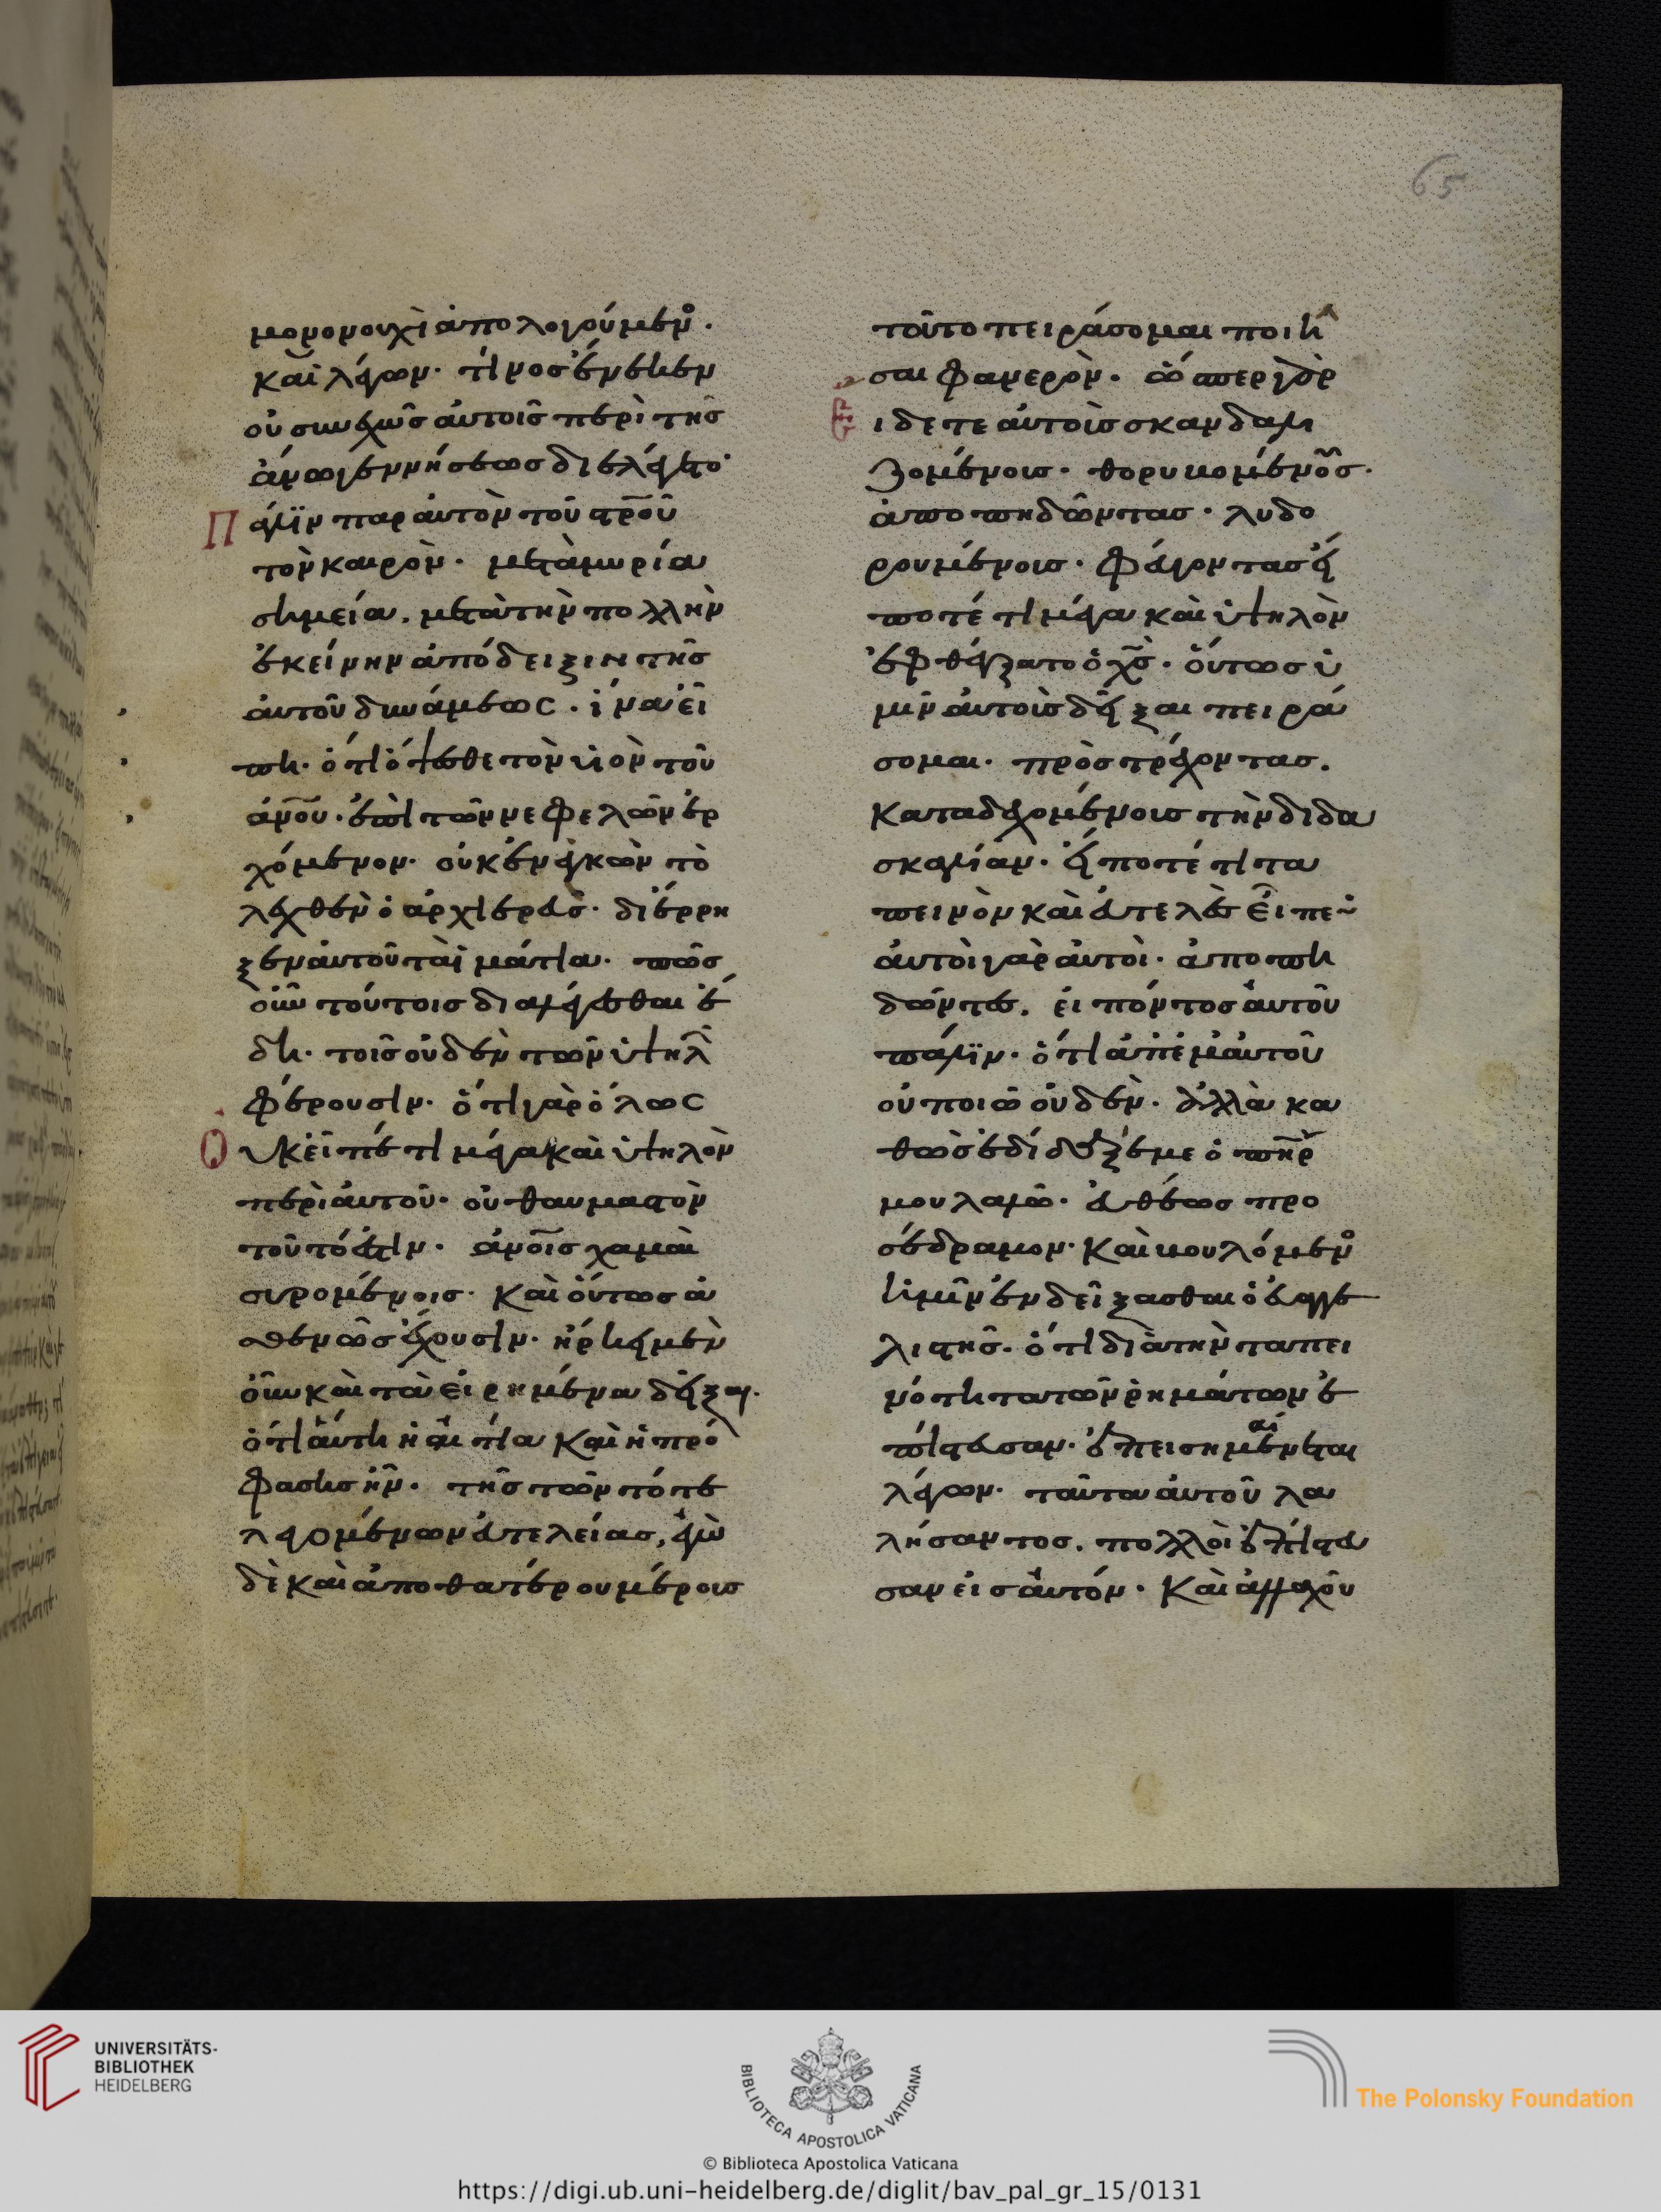 65
μονονουχὶ ἀπολογούμενος.
καὶ λέγων· τίνος ἕνεκεν
οὐ συνεχῶς αὐτοῖς περὶ τῆς
ἄνω γεννήσεως διελέγετο·
Πάλιν παρ αὐτὸν τοῦ στρου
τὸν καιρὸν· μετὰ μυρία
σημεία. μετὰ τὴν πολλὴν
ἐκείνην ἀπόδειξιν τῆς
αὐτοῦ δυνάμεως. ἵνα εἴ
πη· ὅτι ὄψεσθε τὸν υἱὸν τοῦ
ἀνου· ἐπὶ τῶν νεφελῶν ἐρ
χόμενον· οὐκ ἐνεγκὼν τὸ
λεχθὲν ὁ ἀρχιερεὺς· διέρρη
ξεν αὐτοῦ τὰ ἱμάτια· πῶς
οὖν τούτοις διαλέγεσθαι ἔ
δει· τοῖς οὐδὲν τῶν ὑψηλ
φέρουσιν· ὅτι γὰρ ὅλως
Οὐκ εἶπέ τι μέγα καὶ ὑψηλὸν
περὶ αὐτοῦ· οὐ θαυμαστὸν
τοῦτό ἐστιν· ἀνοις χαμαὶ
συρομένοις· καὶ οὕτως ἀ
σθενῶς ἔχουσιν· ἤρκει μὲν
οὖν καὶ τὰ εἰρημένα δεῖξαι·
ὅτι αὕτη ἡ αἰτία καὶ ἡ πρό
φασις ἦν· τῆς τῶν τότε
λεγομένων εὐτελείας, ἐγὼ
δὲ καὶ ἀπο θατέρου μέρους
τοῦτο πειράσομαι ποιῆ
σαι φανερὸν· ὥσπερ γὰρ
ιδετε αὐτοὺς σκανδαλι
ζομένους· θορυβουμένους·
ἀποπηδῶντας· λυδο
ρουμένους· φεύγοντας εἴ
ποτέ τι μέγα καὶ ὑψηλὸν
ἐφθέγξατο ὁ χς· οὕτως ὑ
μῖν αὐτοὺς δεῖξαι πειρά
σομαι· πρὸς τρέχοντας.
καταδεχομένους τὴν διδα
σκαλίαν· εἴ ποτέ τι τα
πεινὸν καὶ εὐτελὲς εἶπε
αὐτοὶ γὰρ αὐτοὶ· ἀποπη
δῶντες. εἰπόντος αὐτοῦ
πάλιν· ὅτι ἀπ ἐμαυτοῦ
οὐ ποιῶ οὐδὲν· ἀλλὰ κα
θὼς ἐδίδαξέ με ὁ πηρ
μου λαλῶ· εὐθέως προ
σέδραμον· καὶ βουλόμενος
ἡμῖν ἐνδείξασθαι ὁ εὐαγγε
λιστὴς· ὅτι διὰ τὴν ταπει
νότητα τῶν ρημάτων ἐ
πίστευσαν· ἐπεισημαίνεται
λέγων· ταῦτα αὐτοῦ λα
λήσαντος. πολλοὶ ἐπίστευ
σαν εἰς αὐτόν· καὶ ἀλλαχοῦ
UNIVERSITÄTS-
BIBLIOTHEK
HEIDELBERG
BIBLIOTECA APOSTOLICA VATICANA
The Polonsky Foundation
© Biblioteca Apostolica Vaticana
https://digi.ub.uni-heidelberg.de/diglit/bav_pal_gr_15/0131